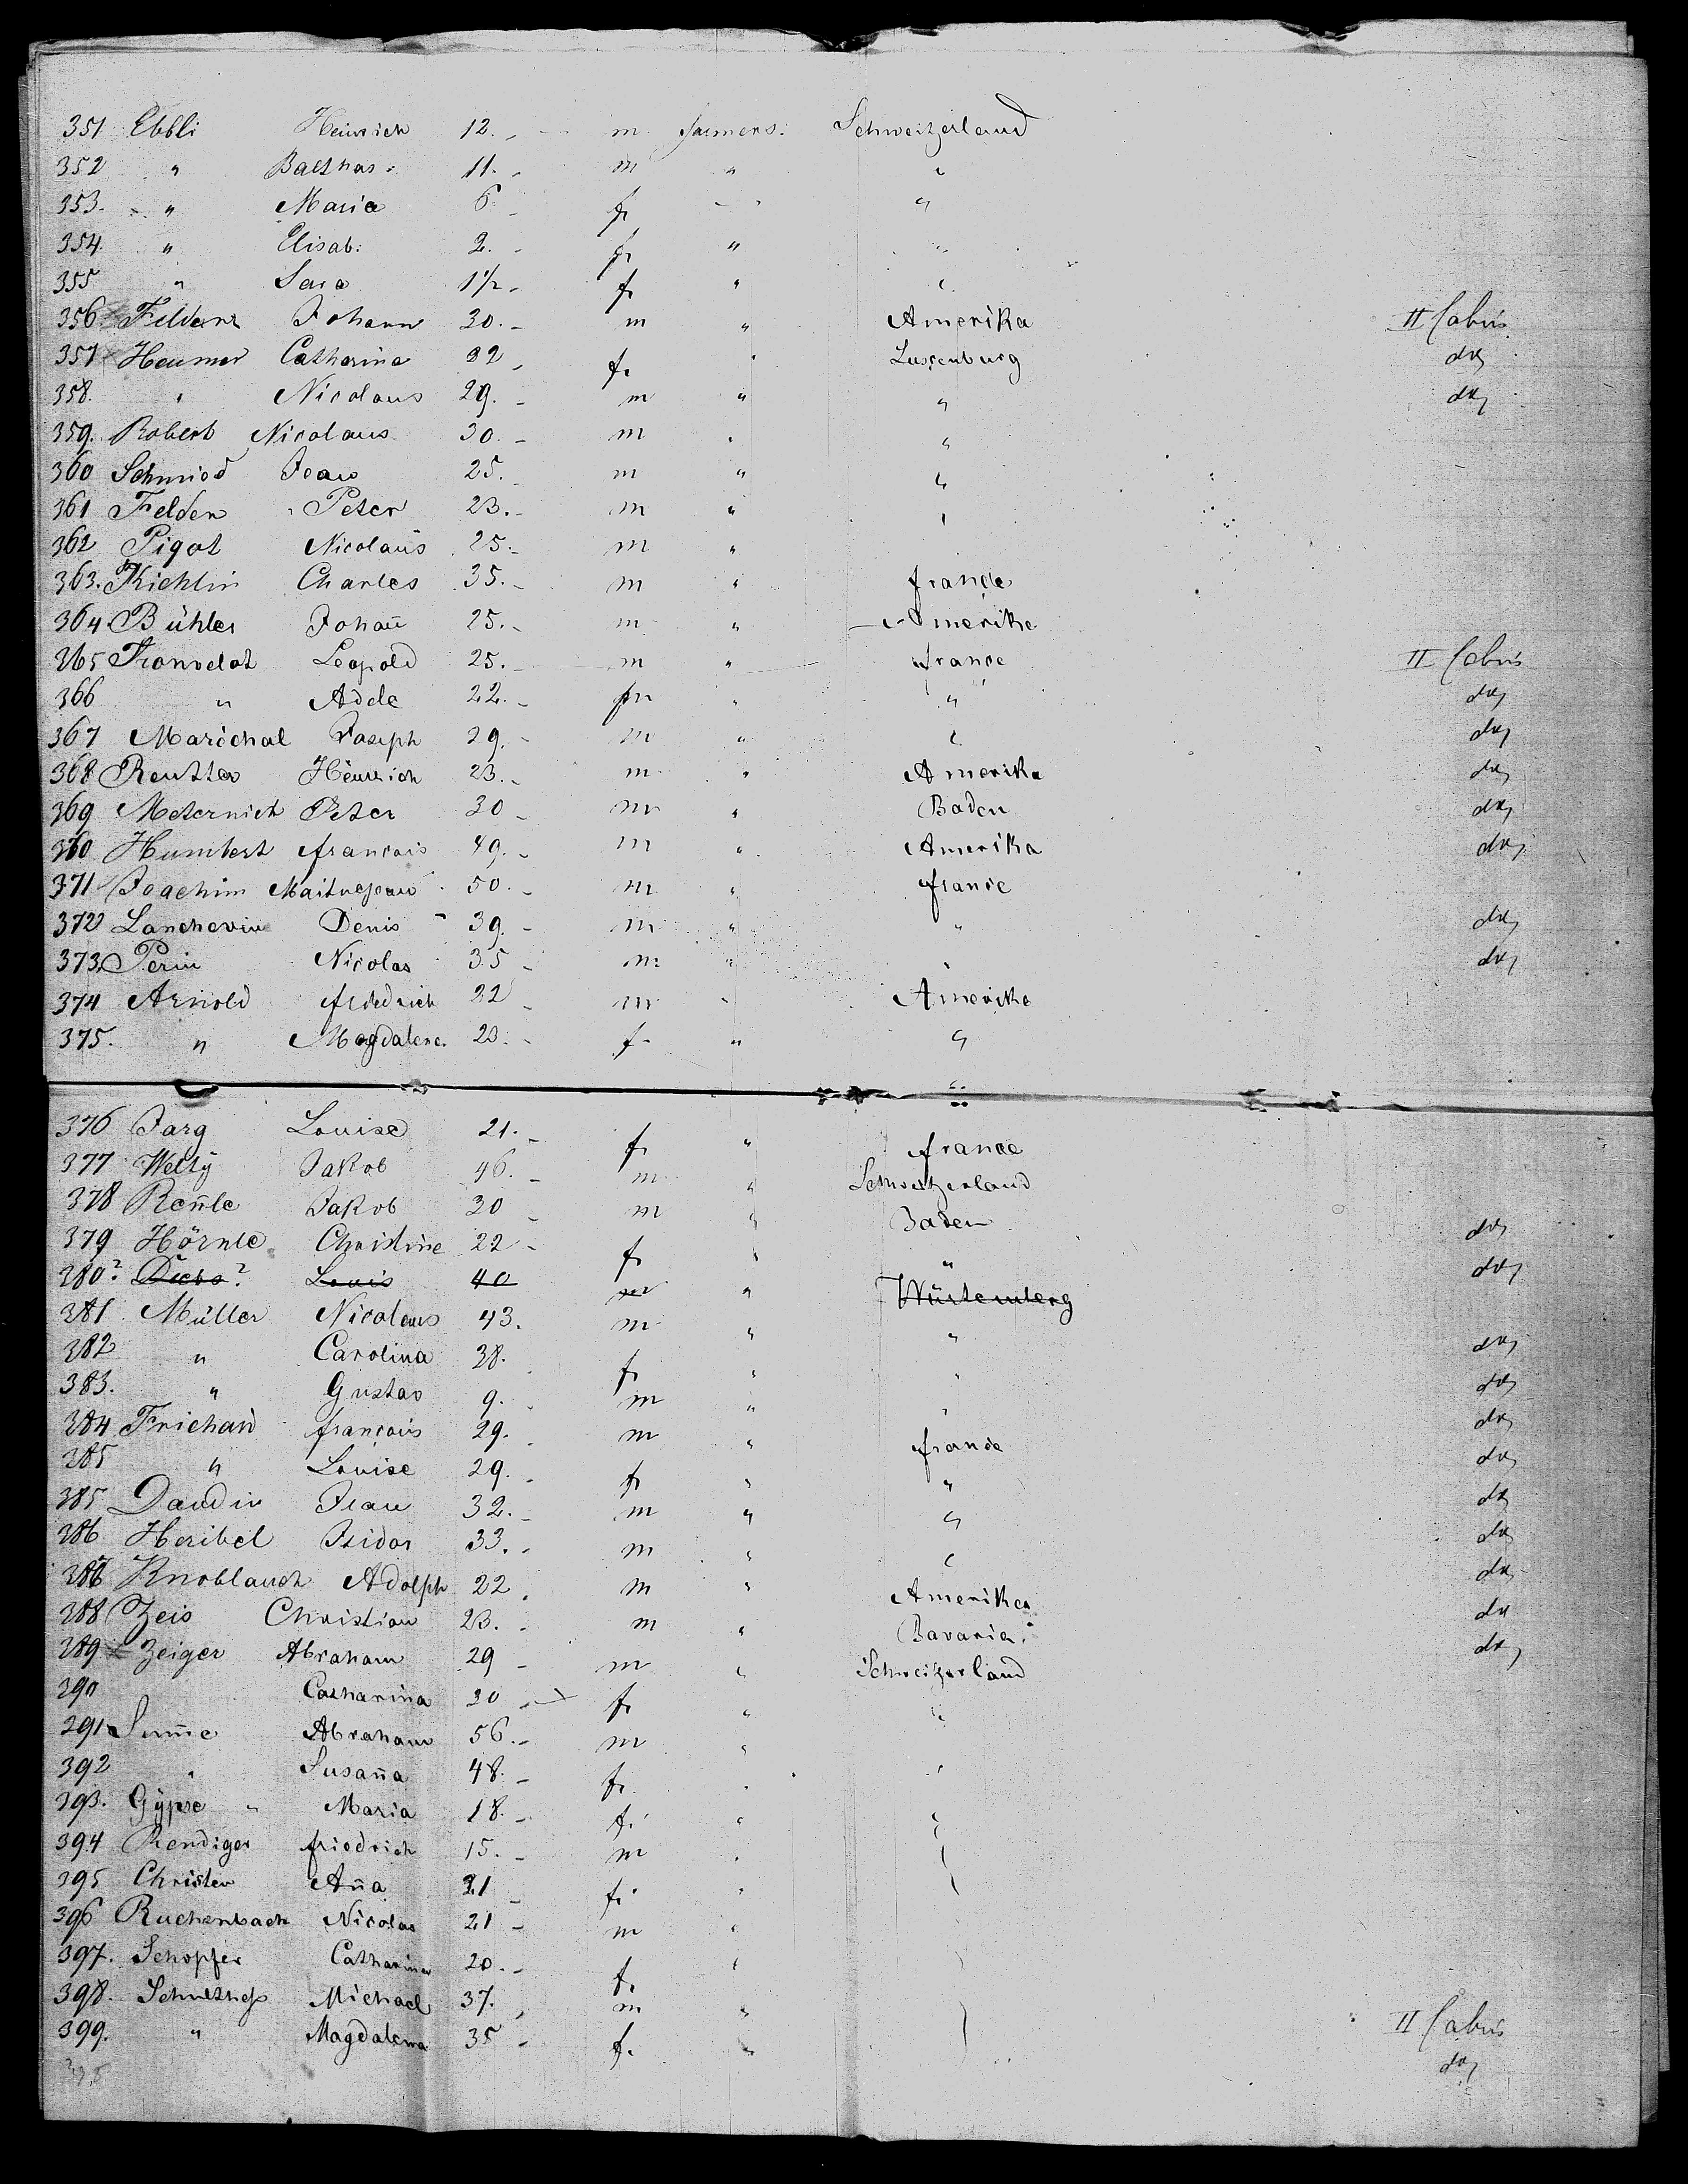 351 Ebbli Heinrich 12. - m farmers. Schweitzerland
352 " Balthas: 11. - m " "
353. " Maria 6. - f. "
354. " Elisab: 2. - f. " "
355 " Sara 1½ - f. " "
356. Feldenz Johann 30. - m " Amerika II Cabin
357 Heumer Catharina 32 - f. " Luxenburg do
358. " Nicolaus 29. - m " " do
359. Robert Nicolaus 30. - m " "
360 Schmied Jean 25. - m " "
361 Felden Peter 23. - m " "
362 Pigot Nicolaus 25. - m "
363. Kiehlin Charles 35. - m " france
364 Bühler Johan̄ 25. - m " Amerika
365 Leopold 25. - m " france II Cabin
366 " Adele 22. - fm " " do
367 Maréchal Joseph 29. - m " " do
368 Reutter Heinrich 23. - m " Amerika do
369 Meternich Peter 30 - m " Baden do
360 Humbert francois 49. - m " Amerika do
371 Joachim Maitrejean 50. - m " france
372 Lanchevin Denis 39. - m " " do
373 Perin Nicolas 35 - m " " do
374 Arnold friedrich 22 - m " Amerika
375. " Magdalene. 23. - f. " "
376 Jarg Louise 21. - f. " france
377 Welty Jakob 46. - m " Schweitzerland
378 Ren̄le Jakob 30 - m " Baden do
379 Hörnle Christine 22 - f. " " do
380? Diebs? Louis 40 m " Würtemberg
381 Müller Nicolaus 43. m " " do
382 " Carolina 38. f. " " do
383. " Gustav 9. m " " do
384 Frichard francois 29. m " france do
385 " Louise 29. - f. " " do
385 Daudin Jean 32. - m " " do
386 Heribel Isidor 33. - m " " do
387 Knoblauch Adolph 22 - m " Amerika do
388 Zeis Christian 23. - m " Bavaria. do
389 Zeiger Abraham 29 - m " Schweitzerland
390 Catharina 30 - f. " "
391 Sum̄e Abraham 56. - m "
392 " Susan̄a 48. - f. " "
393. Gÿpse " Maria 18. - f. " "
394 Rendiger friedrich 15. - m "
395 Christen An̄a 21 - f. "
396 Ruchenbach Nicolas 21 - m "
397. Schopfer Catharina 20. - f. "
398. Schultheß Michael 37. - m " II Cabin
399. " Magdalena 35 - f. " do